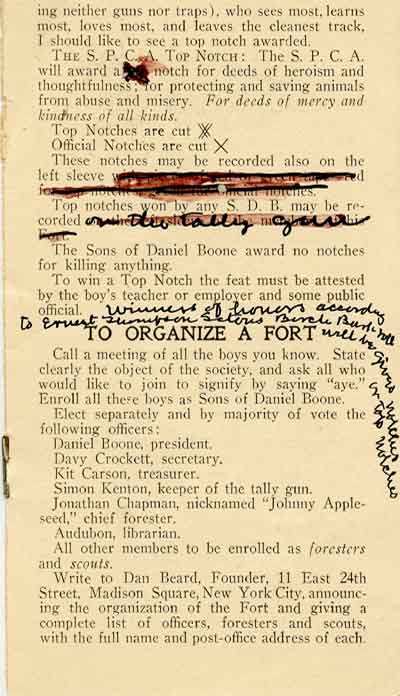 ing neither guns nor traps), who sees most, learns
most, loves most, and leaves the cleanest track,
I should like to see a top notch awarded.
THE S. P. C. A. TOP NOTCH: The S. P. C. A.
will award a notch for deeds of heroism and
thoughtfulness; for protecting and saving animals
from abuse and misery. For deeds of mercy and
kindness of all kinds.
Top Notches are cut
Official Notches are cut X
These notches may be recorded also on the
left sleeve
notches.
Top notches won by any S. D. B. may be re-
corded on the tally gun
Fort.
The Sons of Daniel Boone award no notches
for killing anything.
To win a Top Notch the feat must be attested
by the boy's teacher or employer and some public
official. Winners of honors according
to Ernest Thompson Setons Birch Bark roll
will be given notches
or top notches
TO ORGANIZE A FORT
Call a meeting of all the boys you know. State
clearly the object of the society, and ask all who
would like to join to signify by saying "aye."
Enroll all these boys as Sons of Daniel Boone.
Elect separately and by majority of vote the
following officers:
Daniel Boone, president.
Davy Crockett, secretary.
Kit Carson, treasurer.
Simon Kenton, keeper of the tally gun.
Jonathan Chapman, nicknamed "Johnny Apple-
seed," chief forester.
Audubon, librarian.
All other members to be enrolled as foresters
and scouts.
Write to Dan Beard, Founder, 11 East 24th
Street, Madison Square, New York City, announc-
ing the organization of the Fort and giving a
complete list of officers, foresters and scouts,
with the full name and post-office address of each.